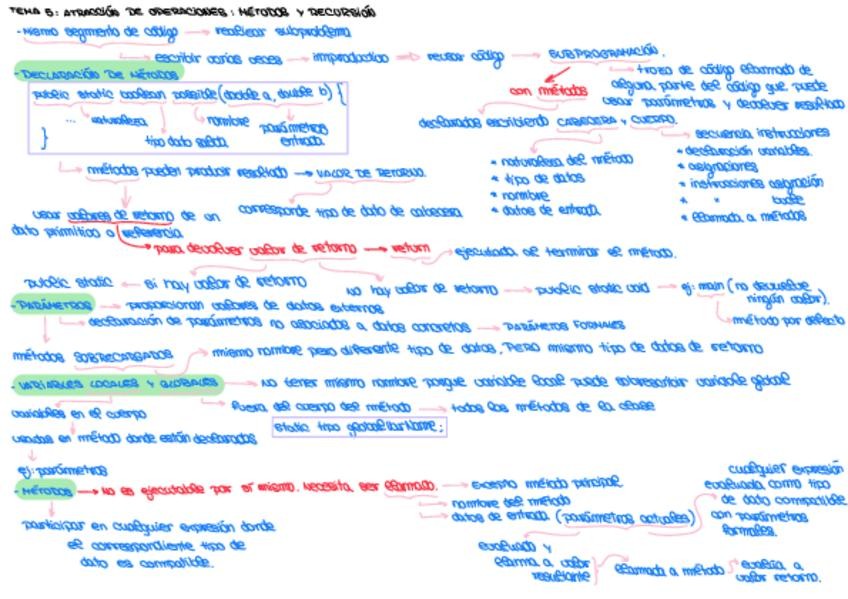 TEMA 5: ATRACCIÓN DE OPERACIONES: MÉTODOS Y RECURSIÓN
- Mismo segmento de código → realizar subproblema
escribir varias veces → improductivo → reusar código → SUBPROGRAMACIÓN.
- DECLARACIÓN DE MÉTODOS
con métodos
trozo de código llamado de
alguna parte del código que puede
usar parámetros y devolver resultado
public static boolean possible (double a, double b) {
... naturaleza
nombre
parámetros
entrada
tipo dato salida
}
declarados escribiendo CABECERA y CUERPO.
* naturaleza del método
* tipo de datos
* nombre
* datos de entrada
secuencia instrucciones
* declaración variables.
* asignaciones
* instrucciones asignación
* " bucle
* llamada a métodos
métodos pueden producir resultado → VALOR DE RETORNO.
corresponde tipo de dato de cabecera
usar valores de retorno de un
dato primitivo o referencia
para devolver valor de retorno → return → ejecutada al terminar el método.
public static ← si hay valor de retorno
no hay valor de retorno → public static void → ej: main (no devuelve
ningún valor).
método por defecto
- PARÁMETROS → proporcionan valores de datos externos
declaración de parámetros no asociados a datos concretos → PARÁMETROS FORMALES
métodos SOBRECARGADOS → mismo nombre pero diferente tipo de datos, PERO mismo tipo de datos de retorno
- VARIABLES LOCALES Y GLOBALES → NO tener mismo nombre porque variable local puede sobrescribir variable global
variables en el cuerpo
fuera del cuerpo del método → todos los métodos de la clase
static tipo globalVarName;
usadas en método donde están declaradas
ej: parámetros
- MÉTODOS → NO es ejecutable por sí mismo. Necesita ser llamado.
excepto método principal
nombre del método
datos de entrada (parámetros actuales)
cualquier expresión
evaluada como tipo
de dato compatible
con parámetros
formales.
participar en cualquier expresión donde
el correspondiente tipo de
dato es compatible.
evaluado y
llama a valor
resultante
llamada a método
evalúa a
valor retorno.